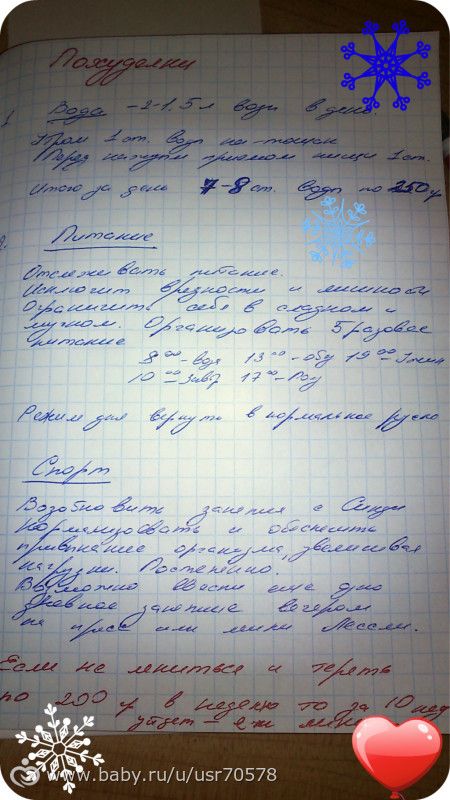 Похуделки
1. Вода - 2-1,5 л воды в день.
Утром 1 ст. воды на тощак
Перед каждым приемом пищи 1 ст.
Итого за день 7-8 ст. воды по 250 гр
2. Питание
Отслеживать питание.
Исключить вредности и
Ограничить себя в сладком и
мучном. Организовать 5 разовое
питание
8 00 - вода 13 00 - обу 19 00 - Ужин
10 00 - завтр 17 00 -
Режим дня вернуть в нормальное русло
Спорт
Возобновить занятия с Синди
Нормализовать и обеспечить
привыкание организма, увеличивая
нагрузки. Постепенно.
Возможно ввести еще одно
дневное занятие вечером
на пресс или мини Лесли.
Если не лениться и терять
по 200 гр в неделю то за 10 нед
уйдет - 2 кг
www.baby.ru/u/usr70578